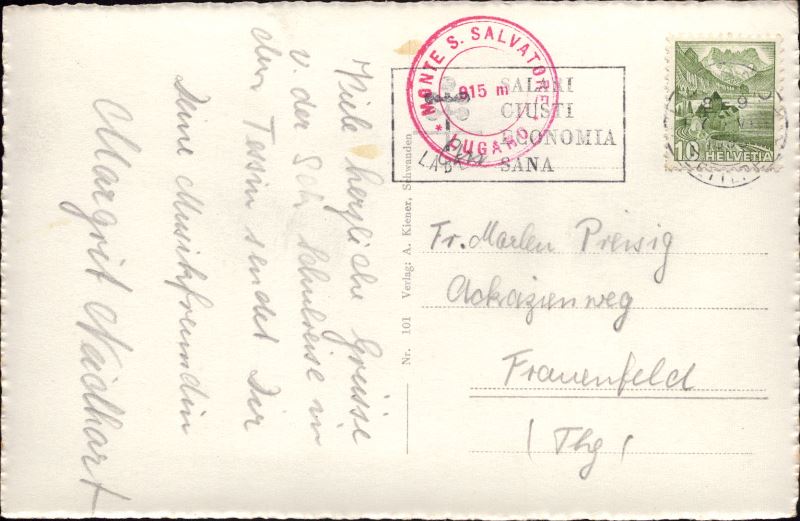 Viele herzliche Grüsse
v. der Sch Schulreise in
den Tessin sendet Dir
Deine Musikfreundin
Margrit Naidhart
Nr. 101 Verlag: A. Kiener, Schwanden
MONTE S. SALVATORE
915 m
* LUGANO *
SALARI
GIUSTI
ECONOMIA
SANA
LABEL
10 HELVETIA
Fr. Marlen Preisig
Ackazienweg
Frauenfeld
(Thg)